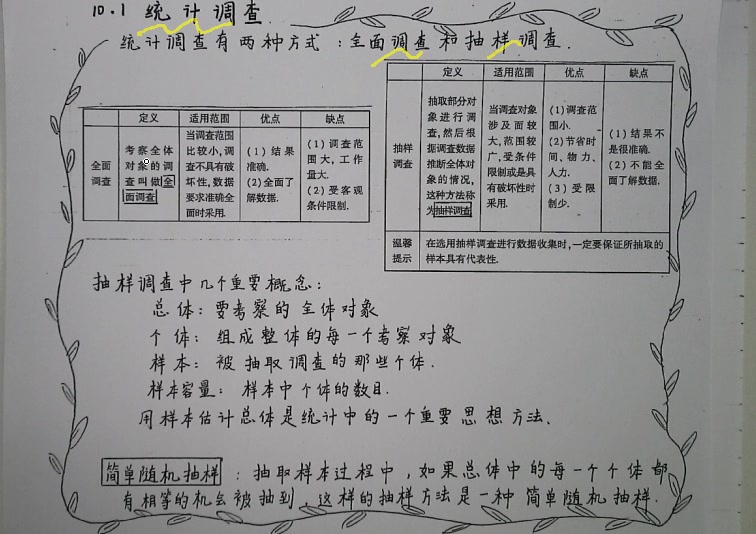 10.1 统计调查
统计调查有两种方式：全面调查和抽样调查.
定义 适用范围 优点 缺点
全面
调查
考察全体
对象的调
查叫做全
面调查
当调查范围
比较小,调
查不具有破
坏性,数据
要求准确全
面时采用.
(1)结果
准确.
(2)全面了
解数据.
(1)调查范
围大,工作
量大.
(2)受客观
条件限制.
定义 适用范围 优点 缺点
抽样
调查
抽取部分对
象进行调
查,然后根
据调查数据
推断全体对
象的情况,
这种方法称
为抽样调查
当调查对象
涉及面较
大,范围较
广,受条件
限制或是具
有破坏性时
采用.
(1)调查范
围小.
(2)节省时
间、物力、
人力.
(3)受限
制少.
(1)结果不
是很准确.
(2)不能全
面了解数据.
温馨
提示
在选用抽样调查进行数据收集时,一定要保证所抽取的
样本具有代表性.
抽样调查中几个重要概念：
总体：要考察的全体对象
个体：组成整体的每一个考察对象
样本：被抽取调查的那些个体.
样本容量：样本中个体的数目.
用样本估计总体是统计中的一个重要思想方法、
简单随机抽样：抽取样本过程中,如果总体中的每一个个体都
有相等的机会被抽到,这样的抽样方法是一种简单随机抽样.